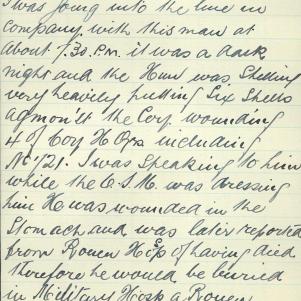 I was going into the line in
company with this man at
about 7.30. P.m. it was a dark
night and the Hun was Shelling
very heavily putting Six Shells
the Coy. wounding
4 of Coy H Qrs including
I was Speaking to him
while the C.S.M. was dressing
him He was wounded in the
Stomach and was later reported
from Rouen of having died
therefore he would be buried
in Military Hosp a Rouen